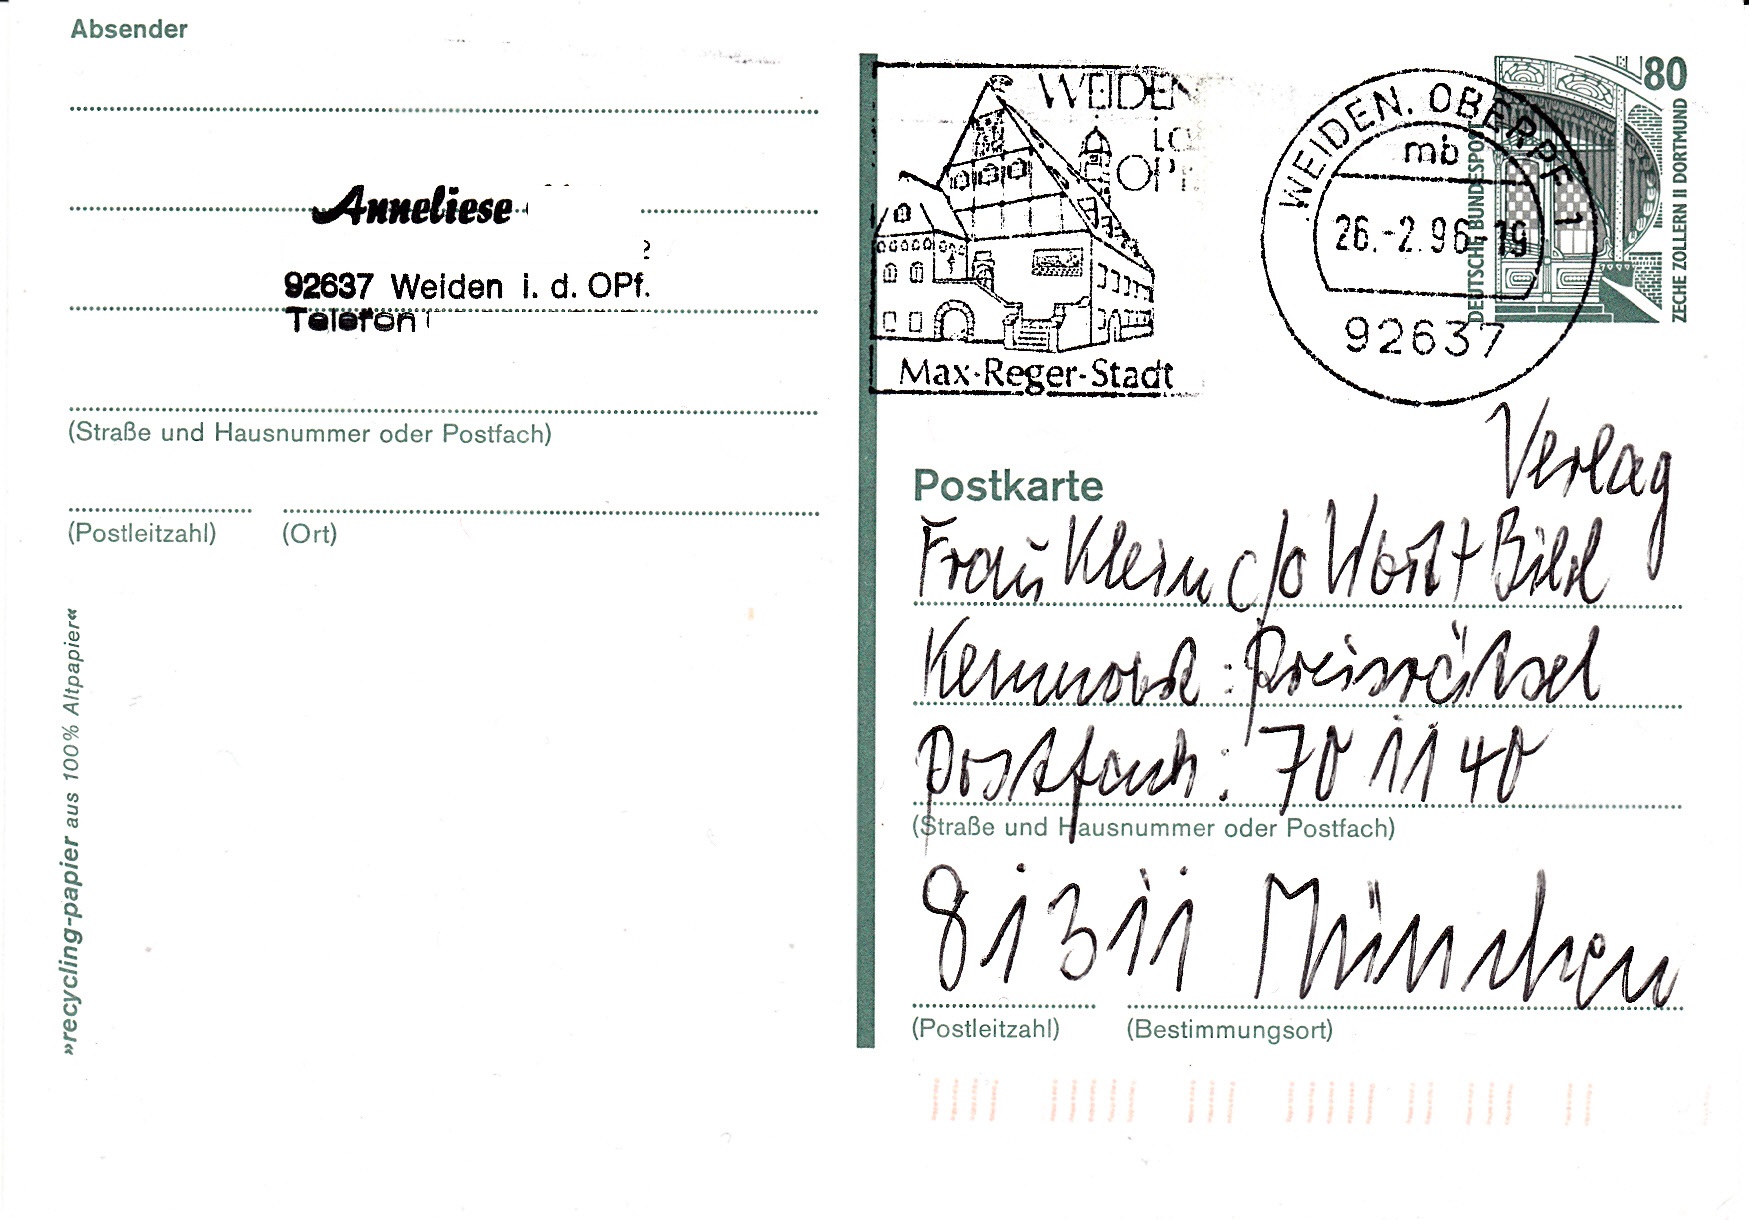 Absender
Anneliese
92637 Weiden i. d. OPf.
Telefon
(Straße und Hausnummer oder Postfach)
(Postleitzahl) (Ort)
»recycling-papier aus 100% Altpapier«
WEIDEN
Max-Reger-Stadt
WEIDEN, OBERPF 1
mb
26.-2.96-19
92637
80
DEUTSCHE BUNDESPOST
ZECHE ZOLLERN II DORTMUND
Postkarte
Verlag
Frau Klein c/o Wort + Bild
Kennwort : Preisrätsel
Postfach : 70 11 40
(Straße und Hausnummer oder Postfach)
81311 München
(Postleitzahl) (Bestimmungsort)